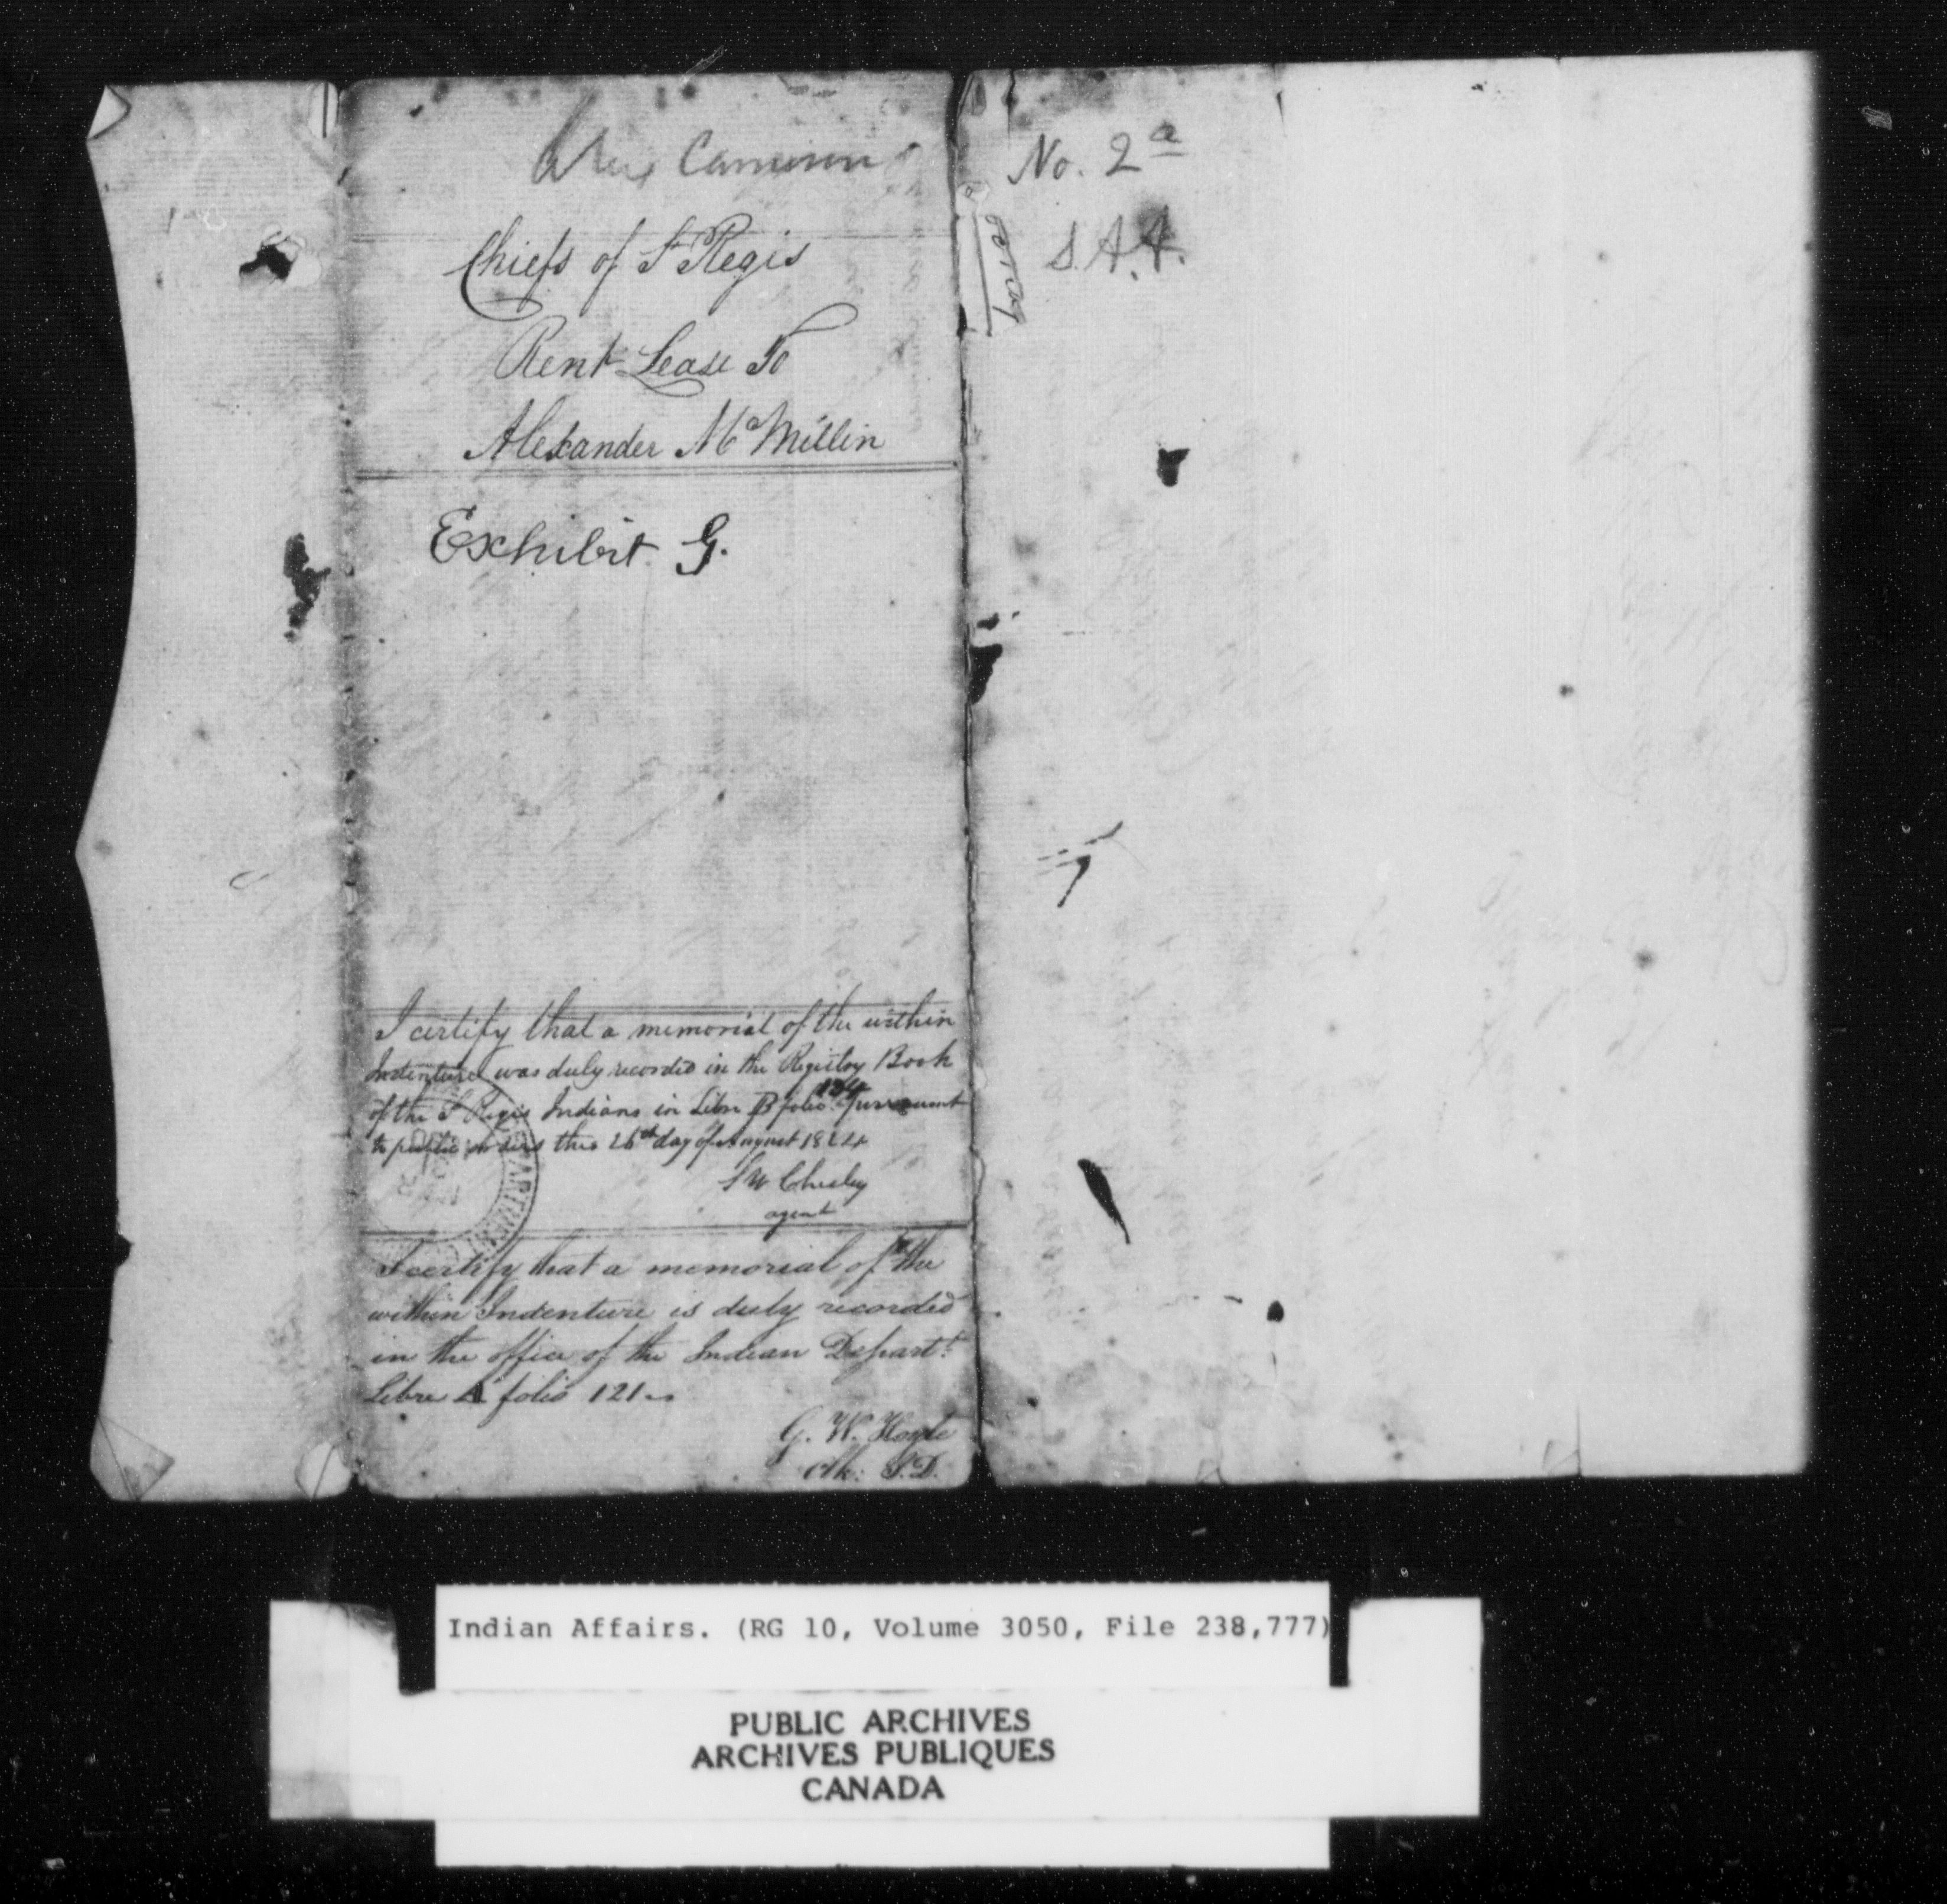 Alex Cameron
Chiefs of St Regis
Rent Lease To
Alexander McMillin
Exhibit G.
I certify that a memorial of the within
Indenture was duly recorded in the Registry Book
of the St Regis Indians in Libre B folio 134 pursuant
to public orders this 26th day of August 1824
S W Chesley
agent
I certify that a memorial of the
within Indenture is duly recorded
in the office of the Indian Depart.t
Libre A folio 121
G. W. Hoyle
Clk: I.D.
No. 2a
S.A.A.
Indian Affairs. (RG 10, Volume 3050, File 238,777)
PUBLIC ARCHIVES
ARCHIVES PUBLIQUES
CANADA